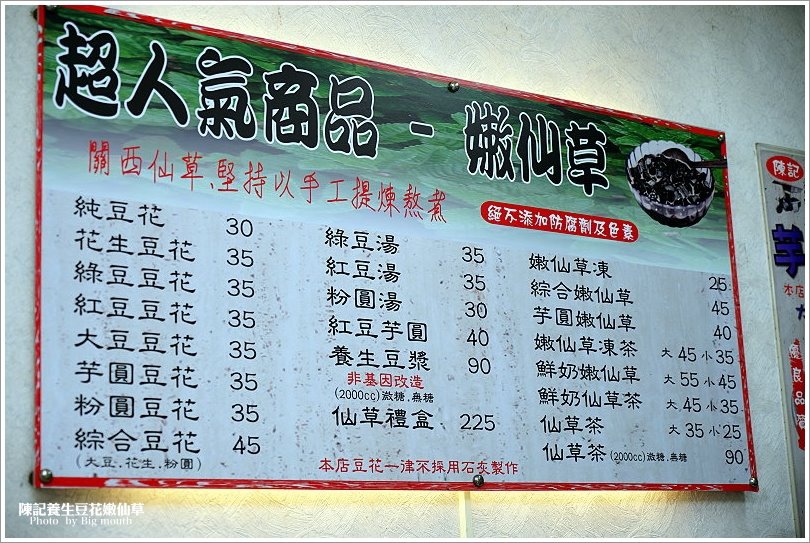 超人氣商品 - 嫩仙草
關西仙草、堅持以手工提煉熬煮
絕不添加防腐劑及色素
純豆花 30
花生豆花 35
綠豆豆花 35
紅豆豆花 35
大豆豆花 35
芋圓豆花 35
粉圓豆花 35
綜合豆花 45
(大豆.花生.粉圓)
綠豆湯 35
紅豆湯 35
粉圓湯 30
紅豆芋圓 40
養生豆漿 90
非基因改造
(2000cc)微糖.無糖
仙草禮盒 225
本店豆花一律不採用石灰製作
嫩仙草凍 25
綜合嫩仙草 45
芋圓嫩仙草 40
嫩仙草凍茶 大 45 小 35
鮮奶嫩仙草 大 55 小 45
鮮奶仙草茶 大 45 小 35
仙草茶 大 35 小 25
仙草茶 (2000cc)微糖.無糖 90
陳記
芋
本店
陳記養生豆花嫩仙草
Photo by Big mouth